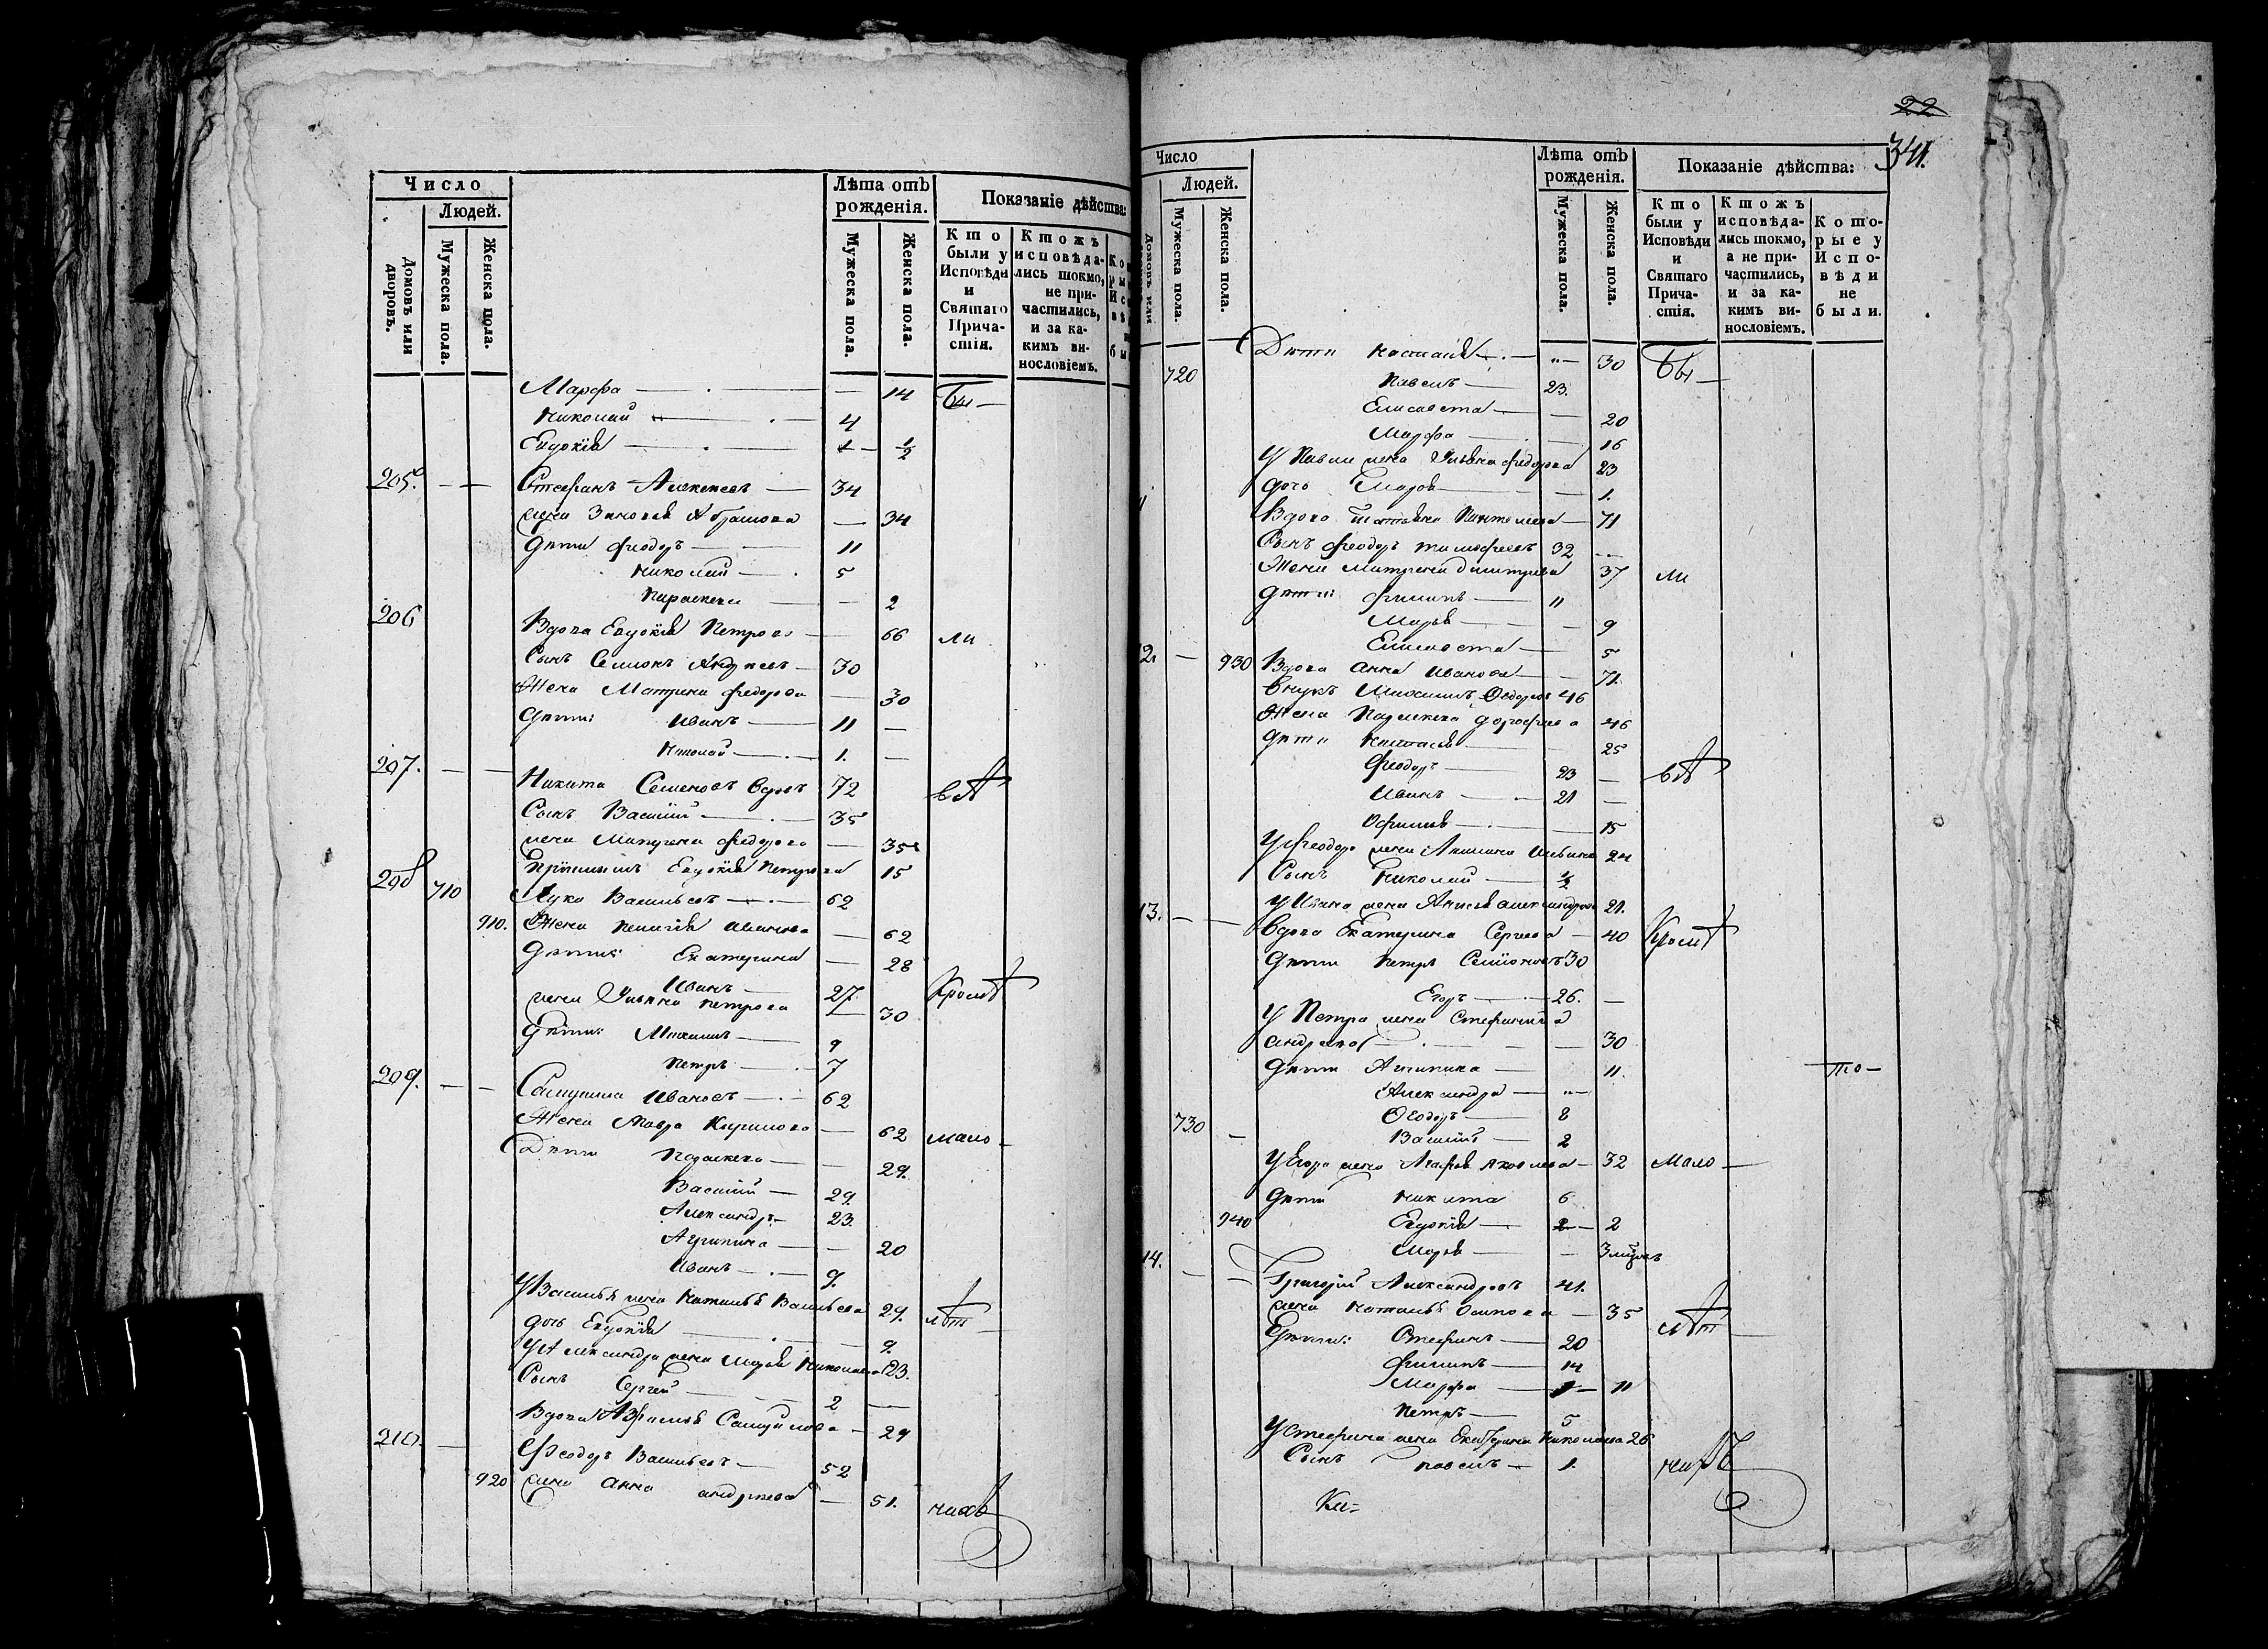 Число
Людей.
Домовъ или дворовъ.
Мужеска пола.
Женска пола.
Лѣта отъ рожденія.
Мужеска пола.
Женска пола.
Показаніе дѣйства:
Кто были у Исповѣди и Святаго Причастія.
Ктожъ исповѣдались токмо, не причастились, и за какимъ винословіемъ.
Марфа — 14 Бы
Николай 4
Евдокія — 1/2
205. Стефанъ Алексеевъ 34
жена Зиновья Абрамова — 34
дети Феодоръ 11
Николай 5
Параскева — 2
206 Вдова Евдокія Петрова 66 ли
Сынъ Семионъ Андреевъ 30
Жена Матрена Федорова — 30
дети: Иванъ 11 —
Николай 1. —
207. — — Никита Семеновъ вдовъ 72 вѣ
Сынъ Василий 35
жена Матрена Федорова — 35
Евдокія Петрова 15
208 710 Лука Васильевъ 62
910. Жена Пелагія Иванова — 62
дети: Екатерина — 28
Иванъ 27. Кромѣ
жена Ульяна Петрова — 30
дети: Михаилъ 9
Петръ 7
209. — — Самуила Ивановъ 62
Жена Мавра Кирилова — 62 мало
Дети Параскева — 29.
Василий 29.
Александръ 23.
Агрипина — 20
Иванъ 9.
У Василья жена Наталья Васильева 29. лѣт
дочь Евдокія — 9.
У Александра жена Марья Николаева 23.
Сынъ Сергей 2 —
Вдова Самуилова — 29
210. — Феодоръ Васильевъ 52
920 жена Анна Андреева — 51. нихъ
22
341.
Число
Людей.
Домовъ или
Мужеска пола.
Женска пола.
Лѣта отъ рожденія.
Мужеска пола.
Женска пола.
Показаніе дѣйства:
Кто были у Исповѣди и Святаго Причастія.
Ктожъ исповѣдались токмо, а не причастились, и за какимъ винословіемъ.
Которые у Исповѣди не были.
Дети 30 Бы
720 Павелъ 23.
Елисавета — 20
Марфа — 16
У Павла жена Ульяна Федорова 23
дочь Марья — 1.
Вдова Татьяна Пантелеева — 71
Сынъ Феодоръ Тимофеевъ 32
Жена Матрена Димитрева 37 ли
дети: Филипъ 11
Марья — 9
Елисавета 5
930 Вдова Анна Иванова 71.
Внукъ Михаилъ Федоровъ 46
Жена Параскева Дорофеева 46
дети Наталья 25
Феодоръ 23 — вѣ
Иванъ 21 —
Офимья — 15
У Феодора жена Акилина 24
Сынъ Николай 1/2
У Ивана жена Анисья Александрова 21.
13. — — Вдова Екатерина Сергеева — 40 Кромѣ
дети Петръ Семионовъ 30
Егоръ 26. —
У Петра жена Стефанида
Андреева — 30
дети Агрипина 11. то
Александра
730 — Феодоръ 8
Василий 2
У Егора жена Агафья Яковлева 32 Мало
дети Никита 6
940 Евдокія 2
Марья — 3
14. — — Григорій Александровъ 41.
жена Наталья Осипова — 35 лѣт
дети: Стефанъ 20
Филипъ 14
Марфа 11
Петръ 5
У Стефана жена Екатерина Николаева 26
Сынъ Павелъ 1. нихъ